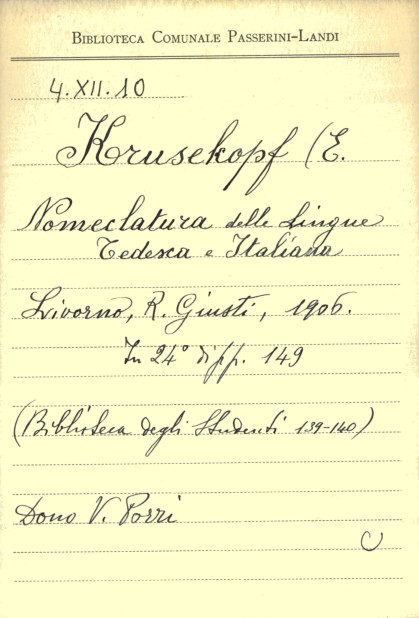 BIBLIOTECA COMUNALE PASSERINI-LANDI
4.XII.10
Krusekopf (E.
Nomeclatura delle Lingue
Tedesca e Italiana
Livorno, R. Giusti, 1906.
In 24° di pp. 149
(Biblioteca degli Studenti 139-140)
Dono V. Porri
C